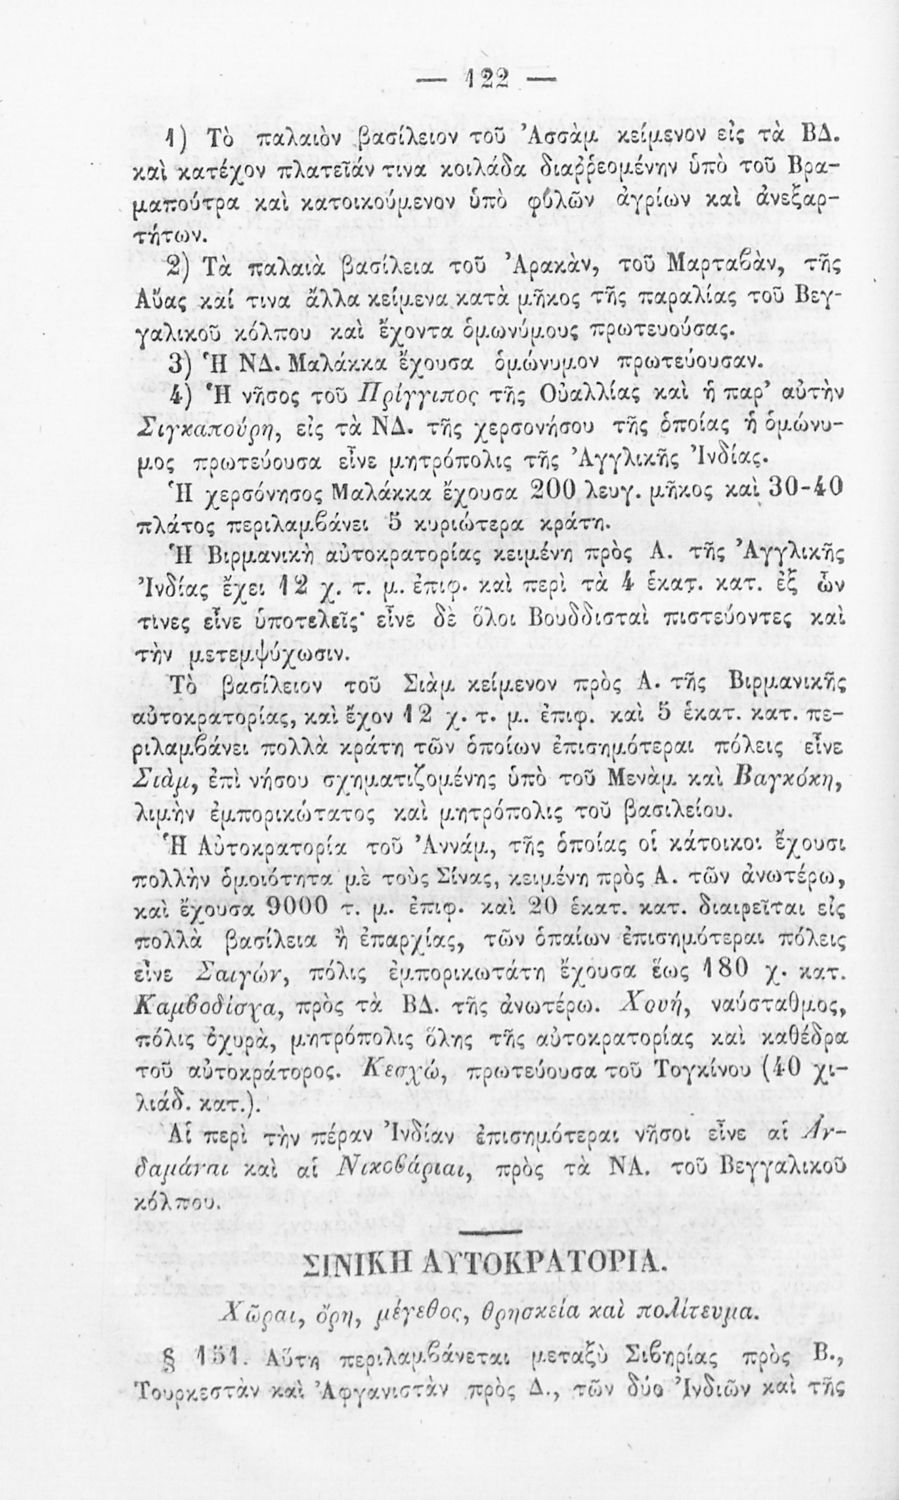 — 122 —
1) Τὸ παλαιὸν βασίλειον τοῦ Ἀσσὰμ κείμενον εἰς τὰ ΒΔ.
καὶ κατέχον πλατεῖάν τινα κοιλάδα διαῤῥεομένην ὑπὸ τοῦ Βρα-
μαπούτρα καὶ κατοικούμενον ὑπὸ φυλῶν ἀγρίων καὶ ἀνεξαρ-
τήτων.
2) Τὰ παλαιὰ βασίλεια τοῦ Ἀρακὰν, τοῦ Μαρταβὰν, τῆς
Αὔας καί τινα ἄλλα κείμενα κατὰ μῆκος τῆς παραλίας τοῦ Βεγ-
γαλικοῦ κόλπου καὶ ἔχοντα ὁμωνύμους πρωτευούσας.
3) Ἡ ΝΔ. Μαλάκκα ἔχουσα ὁμώνυμον πρωτεύουσαν.
4) Ἡ νῆσος τοῦ Πρίγγιπος τῆς Οὐαλλίας καὶ ἡ παρ' αὐτὴν
Σιγκαπούρη, εἰς τὰ ΝΔ. τῆς χερσονήσου τῆς ὁποίας ἡ ὁμώνυ-
μος πρωτεύουσα εἶνε μητρόπολις τῆς Ἀγγλικῆς Ἰνδίας.
Ἡ χερσόνησος Μαλάκκα ἔχουσα 200 λευγ. μῆκος καὶ 30-40
πλάτος περιλαμβάνει 5 κυριώτερα κράτη.
Ἡ Βιρμανικὴ αὐτοκρατορίας κειμένη πρὸς Α. τῆς Ἀγγλικῆς
Ἰνδίας ἔχει 12 χ. τ. μ. ἐπιφ. καὶ περὶ τὰ 4 ἑκατ. κατ. ἐξ ὧν
τινες εἶνε ὑποτελεῖς· εἶνε δὲ ὅλοι Βουδδισταὶ πιστεύοντες καὶ
τὴν μετεμψύχωσιν.
Τὸ βασίλειον τοῦ Σιὰμ κείμενον πρὸς Α. τῆς Βιρμανικῆς
αὐτοκρατορίας, καὶ ἔχον 12 χ. τ. μ. ἐπιφ. καὶ 5 ἑκατ. κατ. πε-
ριλαμβάνει πολλὰ κράτη τῶν ὁποίων ἐπισημότεραι πόλεις εἶνε
Σιὰμ, ἐπὶ νήσου σχηματιζομένης ὑπὸ τοῦ Μενὰμ καὶ Βαγκόκη,
λιμὴν ἐμπορικώτατος καὶ μητρόπολις τοῦ βασιλείου.
Ἡ Αὐτοκρατορία τοῦ Ἀννάμ, τῆς ὁποίας οἱ κάτοικοι ἔχουσι
πολλὴν ὁμοιότητα μὲ τοὺς Σίνας, κειμένη πρὸς Α. τῶν ἀνωτέρω,
καὶ ἔχουσα 9000 τ. μ. ἐπιφ. καὶ 20 ἑκατ. κατ. διαιρεῖται εἰς
πολλὰ βασίλεια ἢ ἐπαρχίας, τῶν ὁπαίων ἐπισημότεραι πόλεις
εἶνε Σαιγών, πόλις ἐμπορικωτάτη ἔχουσα ἕως 180 χ. κατ.
Καμβοδίσγα, πρὸς τὰ ΒΔ. τῆς ἀνωτέρω. Χουή, ναύσταθμος,
πόλις ὀχυρὰ, μητρόπολις ὅλης τῆς αὐτοκρατορίας καὶ καθέδρα
τοῦ αὐτοκράτορος. Κεσχώ, πρωτεύουσα τοῦ Τογκίνου (40 χι-
λιάδ. κατ.).
Αἱ περὶ τὴν πέραν Ἰνδίαν ἐπισημότεραι νῆσοι εἶνε αἱ Ἀν-
δαμάναι καὶ αἱ Νικοβάριαι, πρὸς τὰ ΝΑ. τοῦ Βεγγαλικοῦ
κόλπου.
ΣΙΝΙΚΗ ΑΥΤΟΚΡΑΤΟΡΙΑ.
Χῶραι, ὄρη, μέγεθος, θρησκεία καὶ πολίτευμα.
§ 151. Αὕτη περιλαμβάνεται μεταξὺ Σιβηρίας πρὸς Β.,
Τουρκεστὰν καὶ Ἀφγανιστὰν πρὸς Δ., τῶν δύο Ἰνδιῶν καὶ τῆς